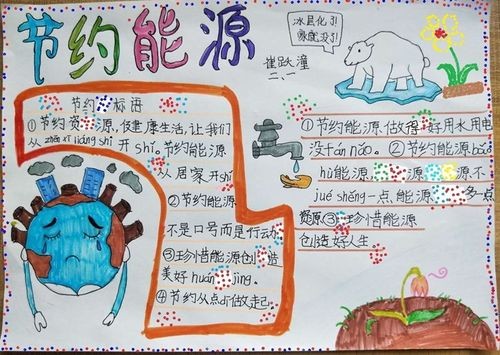 节约能源
冰且化了!
嗲能没了!
崔跃潼
二、一
节约 标语
①节约资 源,健康生活,让我们
从zhēn xī jiāng shí开shǐ。节约能源
从居家开shǐ
②节约能源
不是口号而是行动
③珍惜能源创 造
美好huán 。
④节约从点di做起
①节约能源做得 好用水用电
没fán nǎo。②节约能源
hù能源 源不
jué shěng一点,能源 多一点
资源③珍惜能源
创造好人生。